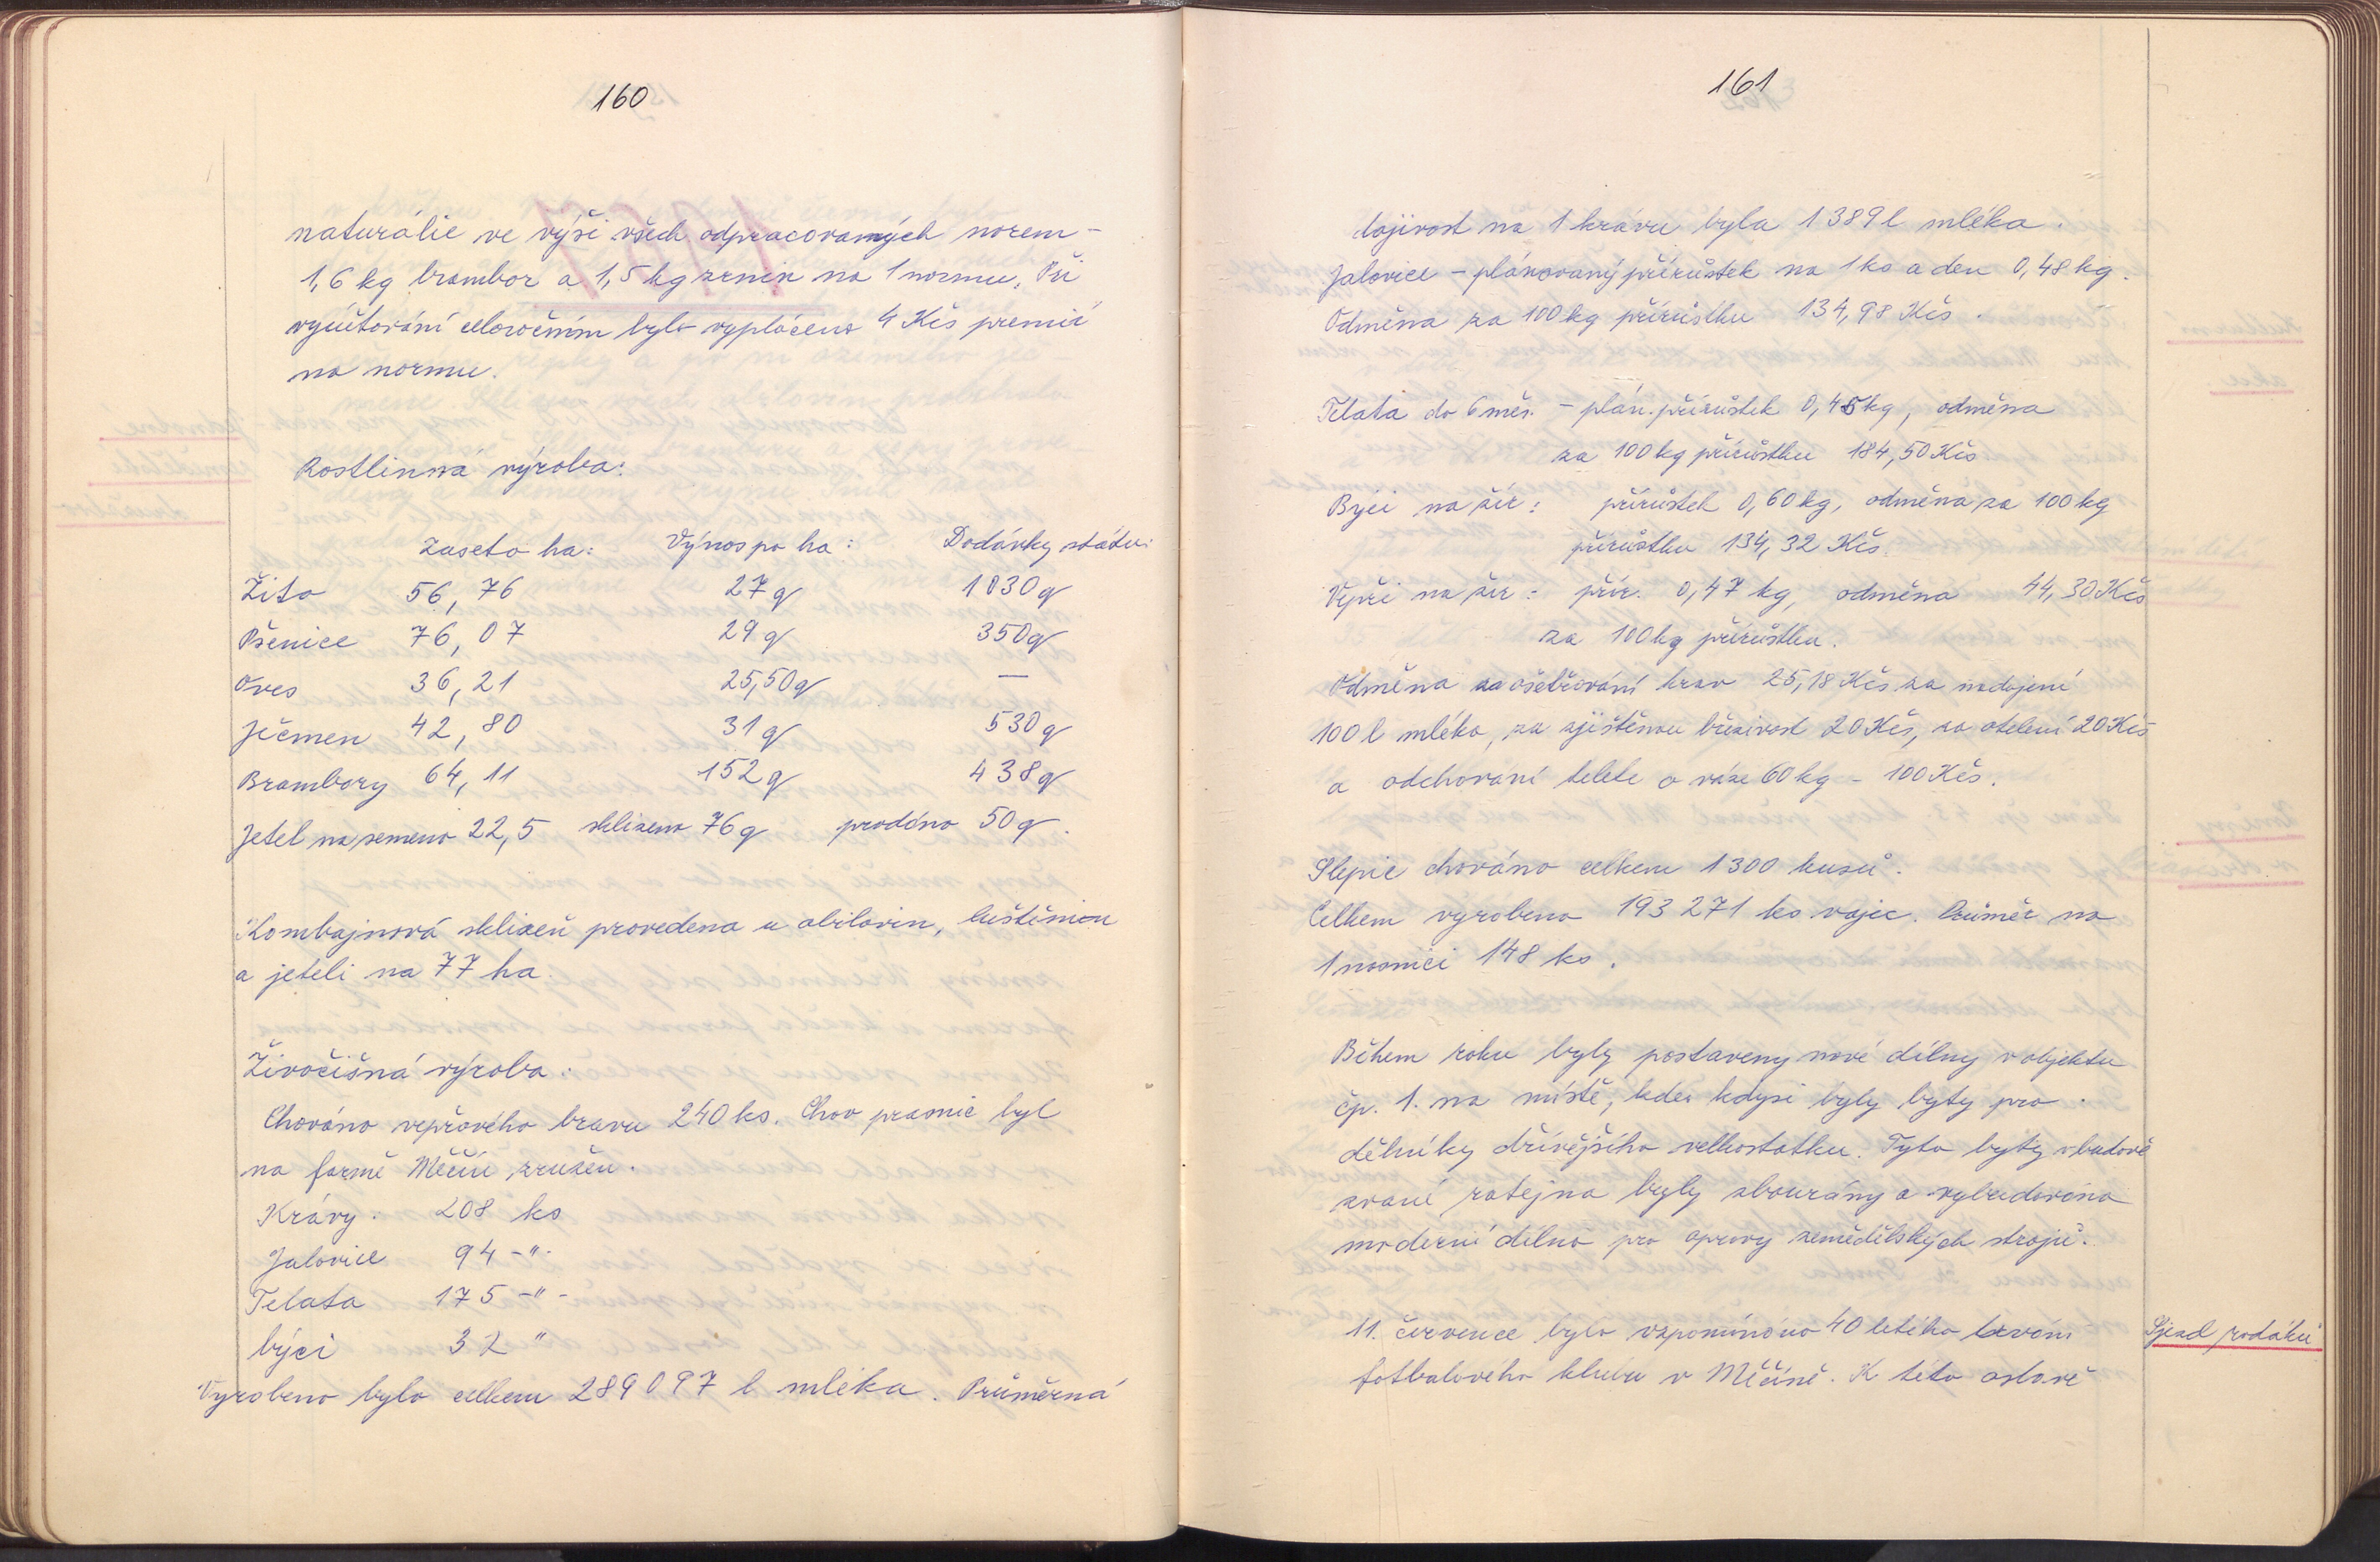 160
naturálie ve výši všech odpracovaných norem -
1,6 kg brambor a 1,5 kg zrnin na 1 normu. Při
vyúčtování celoročním bylo vypláceno 4 Kčs premií
na normu.
Rostlinná výroba:
Zaseto ha: Výnos po ha: Dodávky státu:
Žito 56,76 27 q 1030 q
Pšenice 76,07 29 q 350 q
Oves 36,21 25,50 q —
Ječmen 42,80 31 q 530 q
Brambory 64,11 152 q 438 q
Jetel na semeno 22,5 sklizeno 76 q prodáno 50 q.
Kombajnová sklizeň provedena u obilovin, luštěnin
a jeteli na 77 ha.
Živočišná výroba.
Chováno vepřového bravu 240 ks. Chov prasnic byl
na farmě Měčín zrušen.
Krávy. 208 ks
Jalovice 94 -"-
Telata 175 -"-
býci 32 "
Vyrobeno bylo celkem 289 097 l mléka. Průměrná
161
dojivost na 1 krávu byla 1389 l mléka.
Jalovice - plánovaný přírůstek na 1 ks a den 0,48 kg.
Odměna za 100 kg přírůstku 134,98 Kčs.
Telata do 6 měs. - plán. přírůstek 0,45 kg, odměna
za 100 kg přírůstku 184,50 Kčs
Býci na žír: přírůstek 0,60 kg, odměna za 100 kg
přírůstku 134,32 Kčs.
Vepři na žír: přír. 0,47 kg, odměna 44,30 Kčs
za 100 kg přírůstku.
Odměna za ošetřování krav 25,18 Kčs za nadojení
100 l mléka, za zjištěnou březivost 20 Kčs, za otelení 20 Kčs
a odchování telete o váze 60 kg - 100 Kčs.
Slepic chováno celkem 1300 kusů.
Celkem vyrobeno 193 271 ks vajec. Průměr na
1 nosnici 148 ks.
Během roku byly postaveny nové dílny v objektu
čp. 1. na místě, kde kdysi byly byty pro
dělníky dřívějšího velkostatku. Tyto byty v budově
zvané ratejna byly zbourány a vybudována
moderní dílna pro opravy zemědělských strojů.
11. července bylo vzpomínáno 40 letého trvání
fotbalového klubu v Měčíně. K této oslavě
Sjezd rodáků